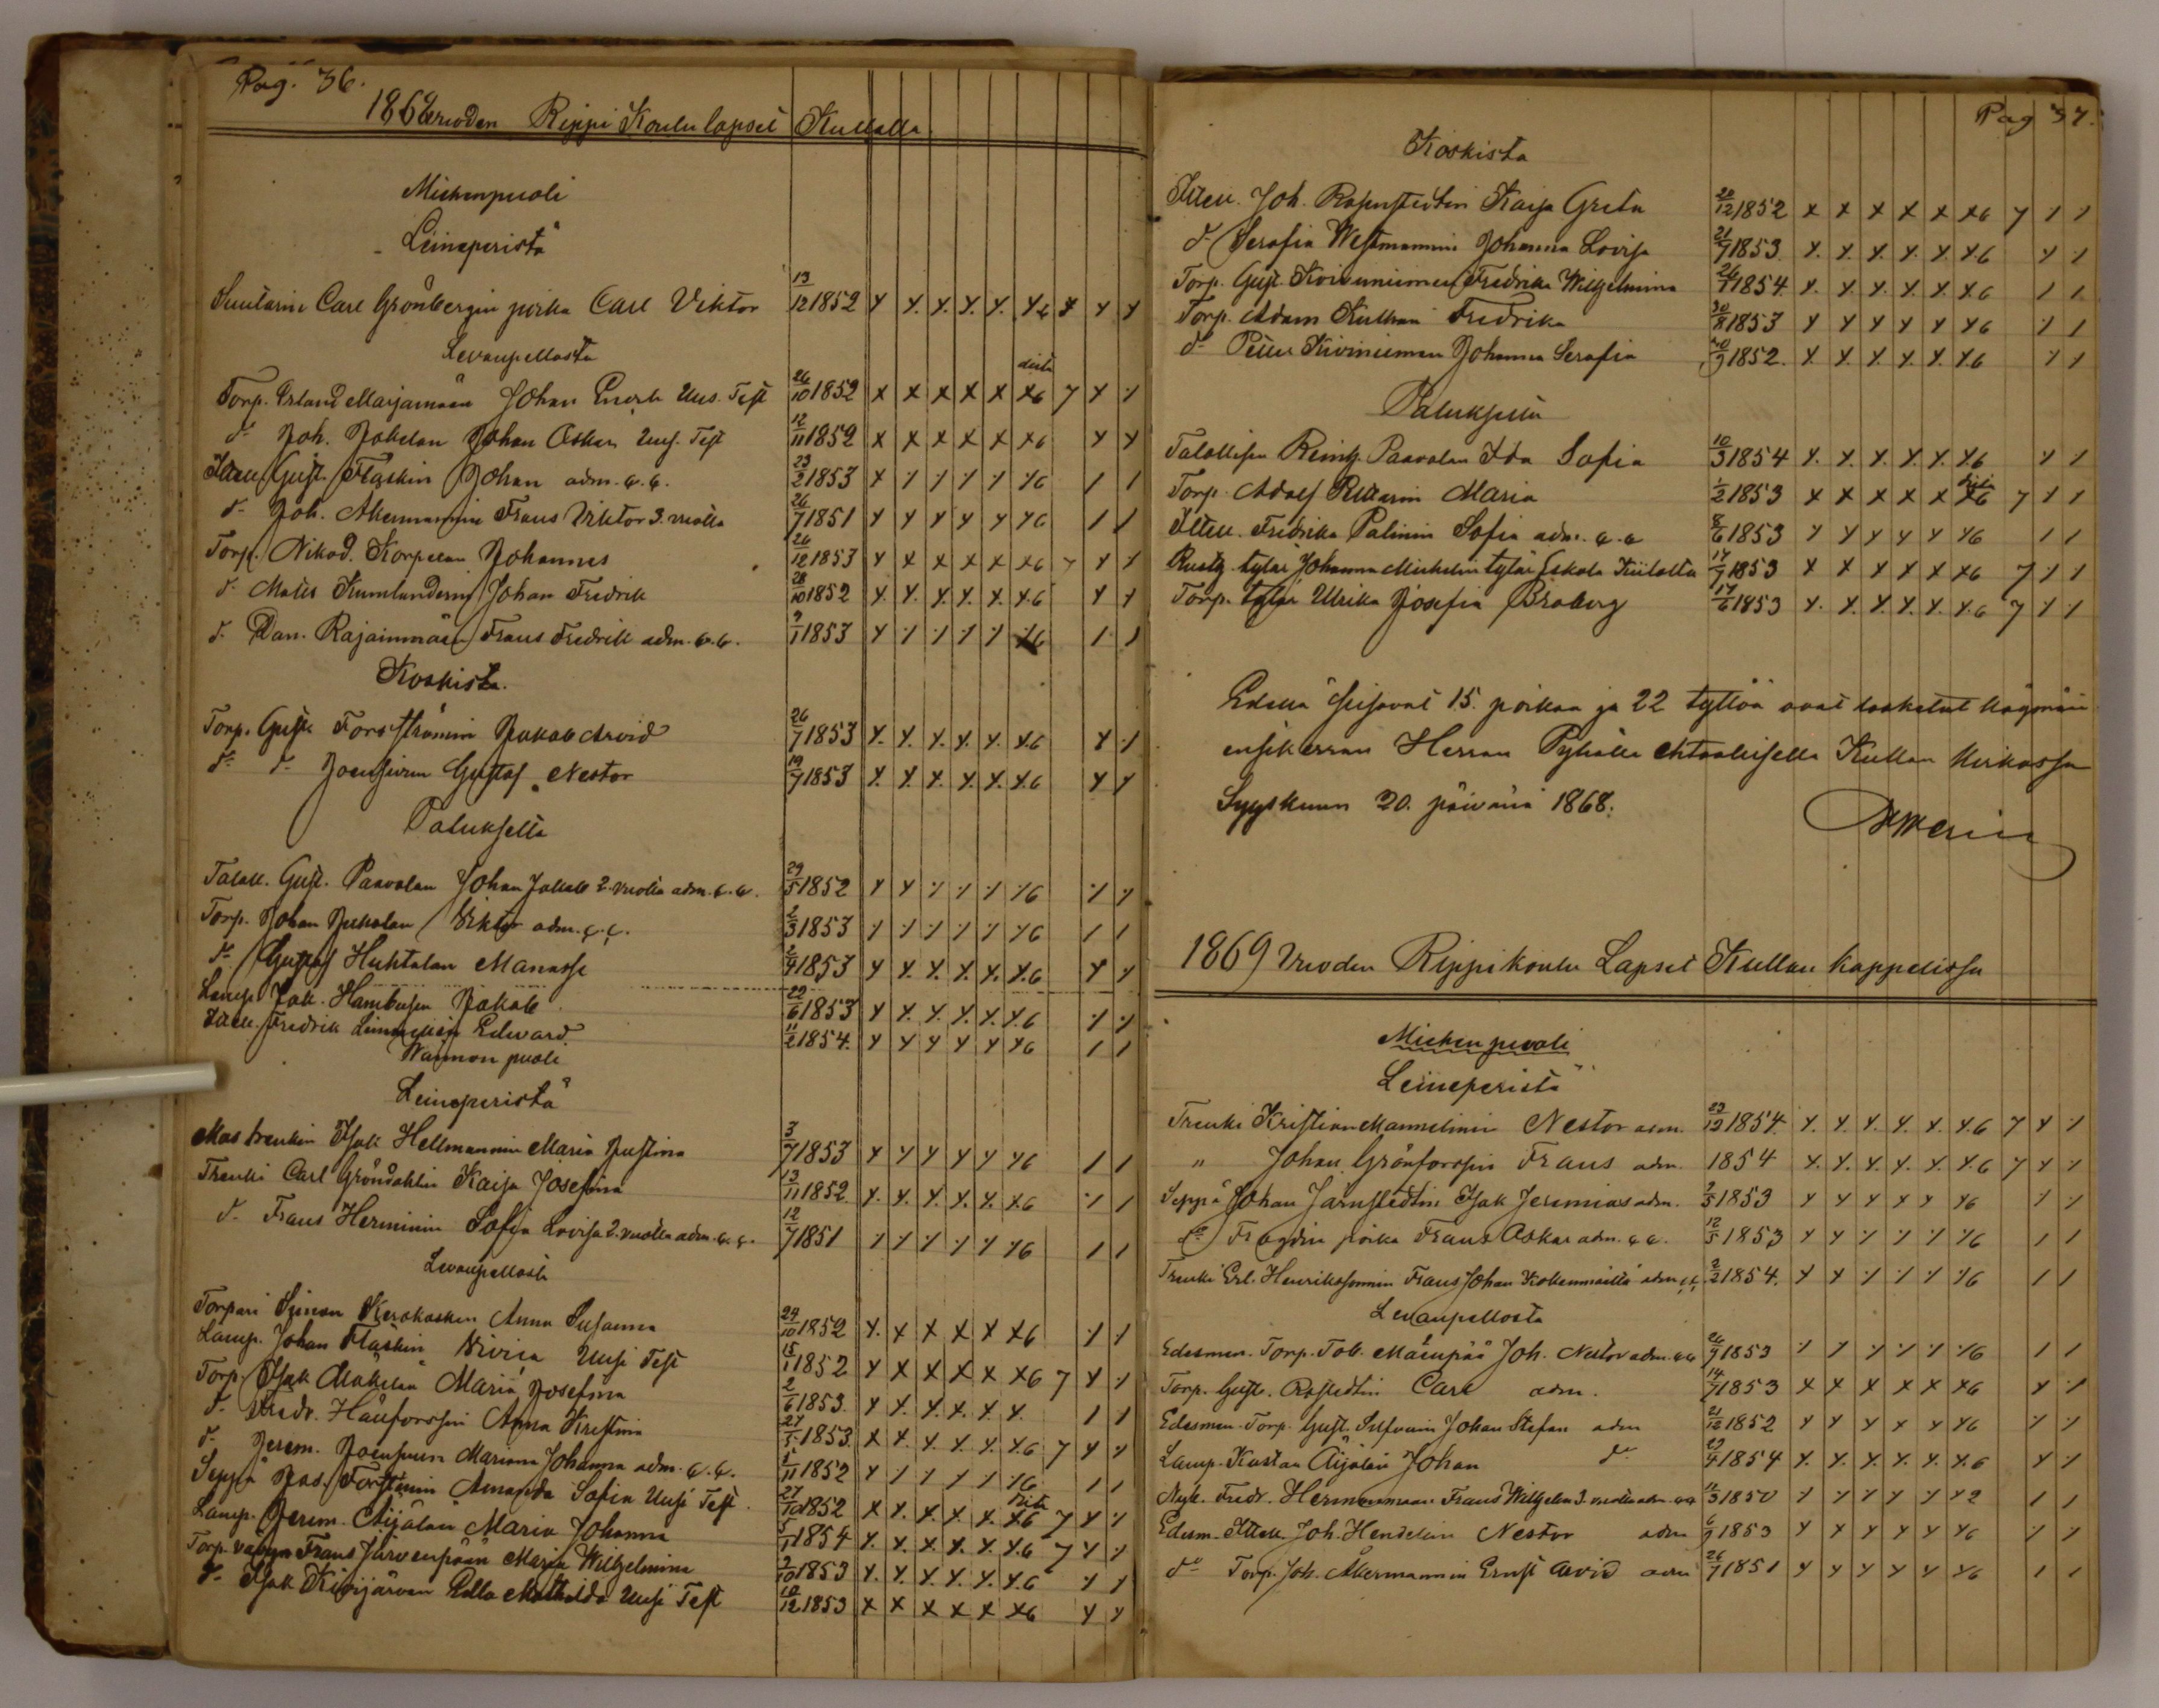 Pag. 36.
1868 vuoden Rippi Koulu lapset Kullalla
Miehenpuoli
Leineperistä
Carl Grönbergin poika Carl Viktor 13/12 1852 x x x x x x6 7 x x
Levanpellosta
Torp. Erland Marjamäen Johan Enok Uus. Test 26/10 1852 x x x x x x6 7 x x
d:o Joh. Jokelan Johan Oskar Uus. Test 12/11 1852 x x x x x x6 x x
Gust. Flaskin Johan adm. c.c. 23/2 1853 x / / / / /6 / /
d:o Joh. Åkermannin Frans Viktor 3. vuotta 26/7 1851 x x x x x x6 / /
Torp. Nikod. Korpelan Johannes 26/12 1853 x x x x x x6 7 x x
d:o Matts Kumlanderin Johan Fredrik 28/10 1852 x x x x x x6 x x
d:o Dan. Rajainmäen Frans Fredrik adm. c.c. 9/1 1853 x / / / / /6 / /
Koskista.
Torp. Gust. Forsströmin Jakob Arvid 26/7 1853 x x x x x x6 x x
d:o d:o Joensuun Gustaf Nestor 19/7 1853 x x x x x x6 x x
Paluksella
Talall. Gust. Paavolan Johan Jakob 2. vuotta adm. c.c. 29/5 1852 x x / / / /6 / /
Torp. Johan Jukolan Viktor adm. c.c. 2/3 1853 / / / / / /6 / /
d:o Gustaf Huhtalan Manasse 2/4 1853 x x x x x x6 x x
Lamp. Jak. Jakob 22/6 1853 x x x x x x6 / /
Fredrik Edvard 11/2 1854. x x x x x x6 / /
Waimon puoli
Leineperistä
Mas. trenkin Isak Hellmannin Maria Justina 3/7 1853 x x x x x x6 / /
Trenki Carl Gröndahlin Kaisa Josefina 13/11 1852 x x x x x x6 / /
d:o Frans Herminin Sofia Lovisa 2. vuotta adm. c.c. 12/7 1851 / / / / / /6 / /
Levanpellosta
Torpari Simon Kerokosken Anna Susanna 24/10 1852 x x x x x x6 / /
Lamp. Johan Flaskin Uusi Test 15/1 1852 x x x x x x6 7 x x
Torp. Isak Mäkelän Maria Josefina 2/6 1853 x x x x x x / /
d:o Fredr. Hänforssin Anna Kristina 27/5 1853 x x x x x x6 7 x x
d:o Jerem. Joensuun Mariana Johanna adm. c.c. 1/11 1852 x / / / / /6 / /
Seppä Amanda Sofia Uusi Test 27/10 1852 x x x x x x6 7 x x
Lamp. Jerem. Äijälän Maria Johanna 5/1 1854 x x x x x x6 7 x x
Torp. Frans Järvenpään Maria Wilhelmina 2/10 1853 x x x x x x6 x x
d:o Isak Kivijärven Edla Mathilda Uusi Test 10/12 1853 x x x x x x6 x x
Pag 37.
Koskista
Joh. Rosenstedtin Kaisa Greta 28/12 1852 x x x x x x6 7 / /
d:o Serafia Westmannin Johanna Lovisa 21/7 1853. x x x x x x6 / /
Torp. Gust. Koivuniemen Fredrika Wilhelmina 24/1 1854. x x x x x x6 / /
Torp. Adam Kullan Fredrika 30/8 1853 x x x x x x6 / /
d:o Petter Kiviniemen Johanna Serafia 20/9 1852. x x x x x x6 / /
Paluksella
Talollisen Reinh. Paavolan Ida Sofia 10/3 1854 x x x x x x6 x /
Torp. Adolf Maria 1/2 1853 x x x x x x6 7 x /
Fredrika Palinin Sofia adm. c.c 8/6 1853 x x x x x x6 / /
Rustg. tytär Johanna Michelin tytär Eskola Kiilolta 14/7 1853 x x x x x x6 7 / /
Torp. tytär Ulrika Josefia Broberg 17/6 1853 x x x x x x6 7 x /
Edellä seisovat 15. poikaa ja 22 tyttöä ovat lasketut käymään
ensikerran Herran Pyhällä ehtoollisella Kullan kirkossa
Syyskuun 20. päivänä 1868.
1869 Vuoden Rippikoulu Lapset Kullan kappelissa
Miehen puoli
Leineperistä
Trenki Kristian Mannelinin Nestor adm. 23/12 1854. x x x x x x6 7 x /
" Johan Grönforssin Frans adm. 1854 x x x x x x6 7 x /
Seppä Johan Järnstedtin Isak Jeremias adm. 2/5 1853 x x x x x x6 / /
d:o poika Frans Oskar adm. c.c. 12/5 1853 x x / / / /6 / /
Trenki Erl. Henrikssonnin Frans Johan Kokenmäeltä adm. c.c. 2/2 1854. x x / / / /6 / /
Levanpellosta
Edesmen. Torp. Tob. Mäenpää Joh. Nestor adm. c.c 26/7 1853 / / / / / /6 / /
Torp. Gust. Rostedtin Carl adm. 14/7 1853 x x x x x x6 x /
Edesmen. Torp. Gust. Johan Stefan adm 21/12 1852 x x x x x x6 / /
Lamp. Kustaa Äijälän Johan d:o 23/4 1854 x x x x x x6 x /
Fredr. Hermonmaan Frans Wilhelm 3. vuotta adm. c.c 11/3 1850 / / / x / x2 / /
Edesm. Joh. Hendelin Nestor adm 6/9 1853 x x x x x x6 / /
d:o Torp. Joh. Åkermannin Ernst Arvid adm 26/7 1851 x x x x x x6 / /